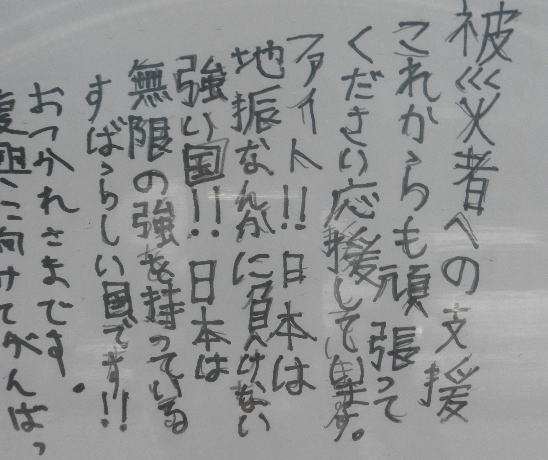 被災者への支援
これからも頑張って
ください応援しています。
ファイト!!日本は
地振なんかに負けない
強い国!!日本は
無限の強を持っている
すばらしい国です!!
おつかれさまです。
に向けてがんばっ